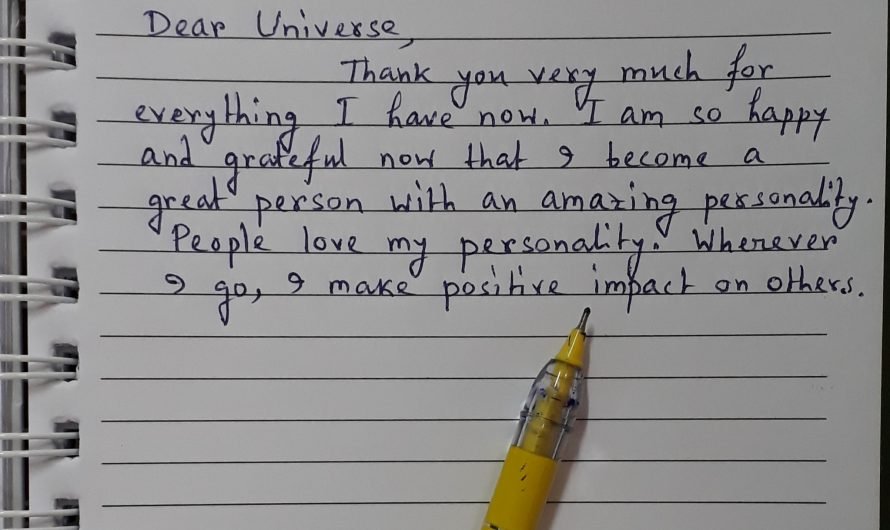 Dear Universe,
Thank you very much for
everything I have now. I am so happy
and grateful now that I become a
great person with an amazing personality.
People love my personality. Wherever
I go, I make positive impact on others.